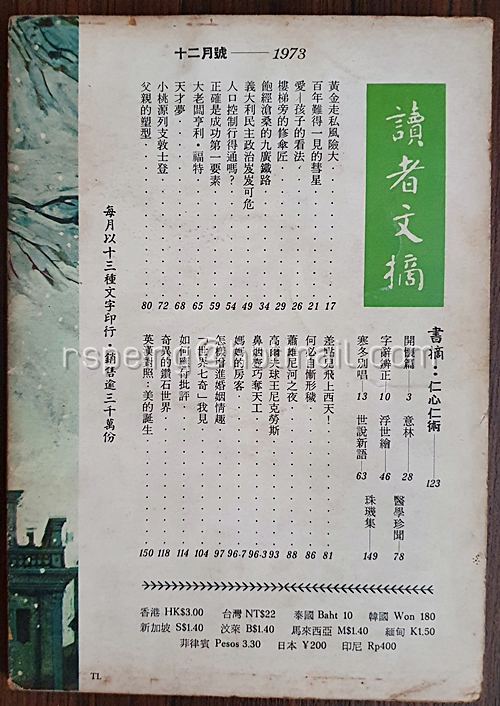 十二月號——1973
讀者文摘
黃金走私風險大 17
百年難得一見的彗星 21
愛—孩子的看法 26
樓梯旁的修傘匠 29
飽經滄桑的九廣鐵路 34
義大利民主政治岌岌可危 49
人口控制行得通嗎? 54
正確是成功第一要素 59
大老闆亨利・福特 65
天才夢 68
小桃源列支敦士登 72
父親的塑型 80
書摘:仁心仁術 123
開懷篇 3 意林 28 醫學珍聞 78
字辭辨正 10 浮世繪 46 珠璣集 149
13 世說新語 63
差點兒飛上西天! 81
何必自慚形穢 86
蕭維尼河之夜 88
高爾夫球王尼克勞斯 93
鼻烟壺巧奪天工 96-3
媽媽的房客 96-7
怎樣增進婚姻情趣 97
「世界七奇」我見 104
如何應付批評 114
奇異的鑽石世界 118
英漢對照:美的誕生 150
每月以十三種文字印行・銷售逾三千萬份
香港 HK$3.00 台灣 NT$22 泰國 Baht 10 韓國 Won 180
新加坡 S$1.40 汶萊 B$1.40 馬來西亞 M$1.40 緬甸 K1.50
菲律賓 Pesos 3.30 日本 ¥200 印尼 Rp400
TL